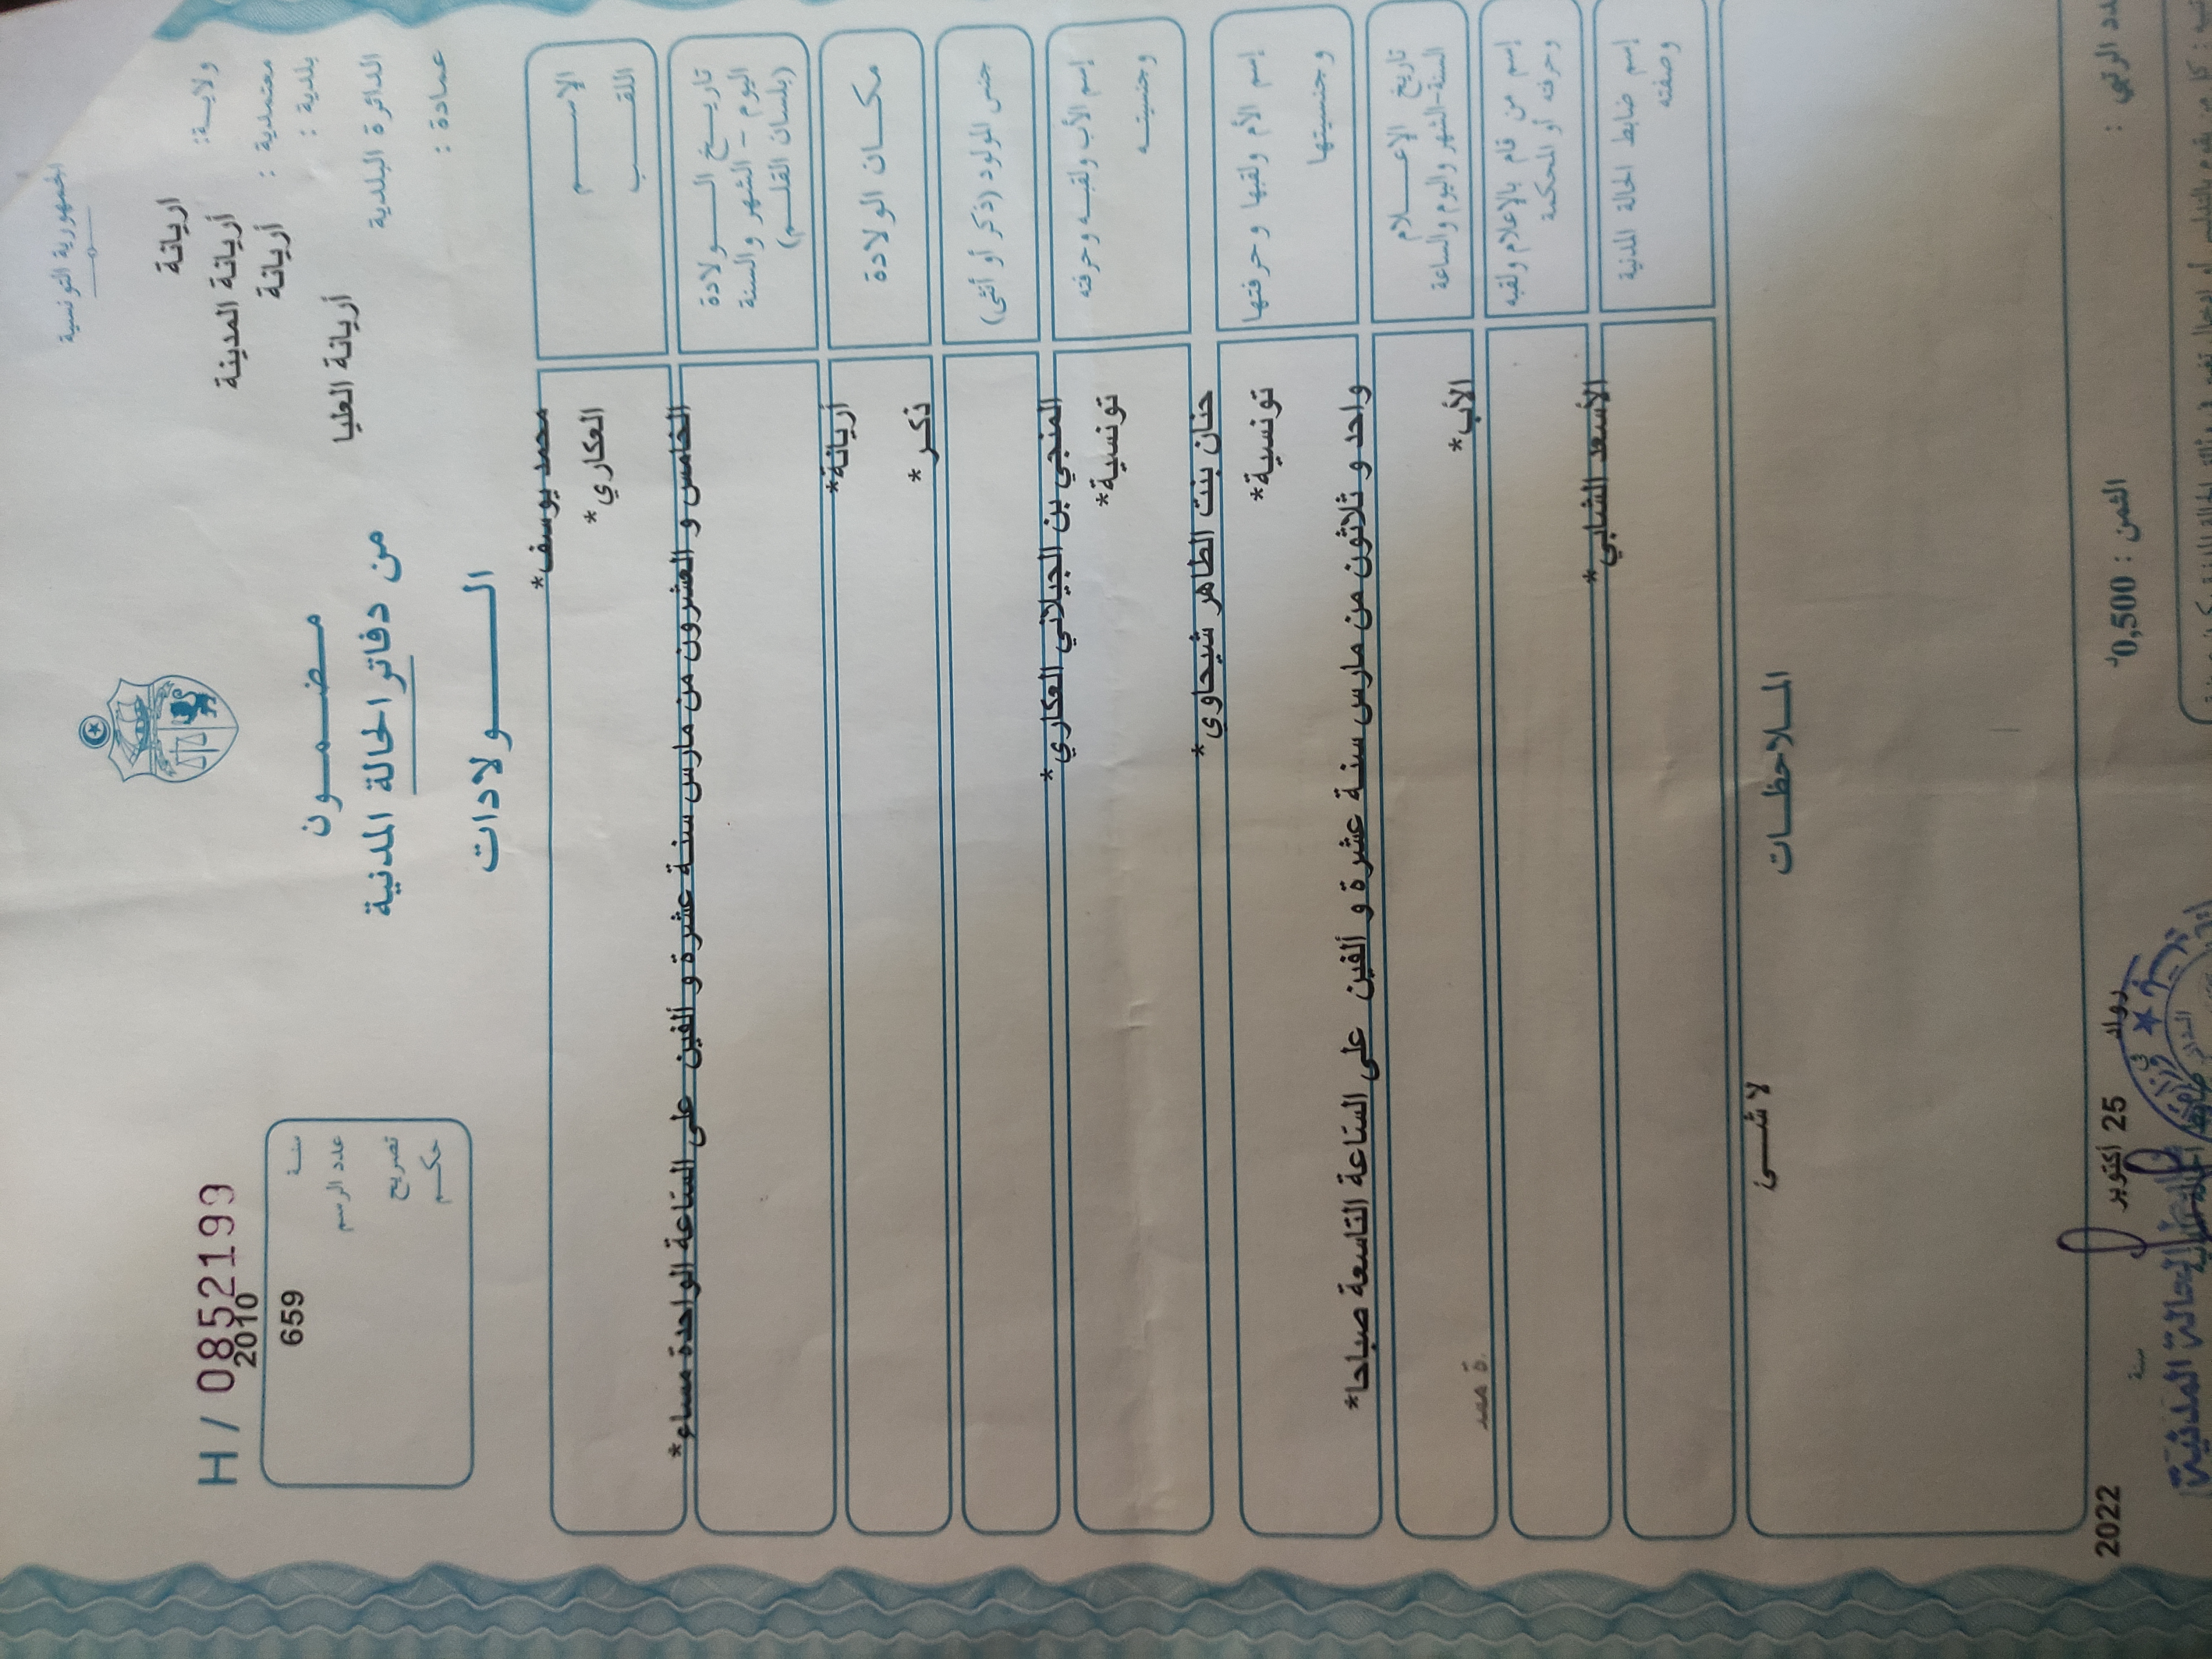 الجمهورية التونسية
ولاية: اريانة
معتمدية : أريانة المدينة
بلدية : أريانة
الدائرة البلدية أريانة العليا
عمادة :
مضمون
من دفاتر الحالة المدنية
الولادات
H / 0852199
2010
سنة
659
عدد الرسم
تصريح
حكم
الإسم محمد يوسف*
اللقب العكاري*
تاريخ الولادة
اليوم – الشهر والسنة
(بلسان القلم)
الخامس و العشرون من مارس سنة عشرة و ألفين على الساعة الواحدة مساء*
مكان الولادة أريانة*
جنس المولود (ذكر أو أنثى) ذكر*
إسم الأب ولقبه وحرفته المنجي بن الجيلاني العكاري*
وجنسيته تونسية*
إسم الأم ولقبها وحرفتها حنان بنت الطاهر شيحاوي*
وجنسيتها تونسية*
تاريخ الإعلام
السنة-الشهر واليوم والساعة
واحد و ثلاثون من مارس سنة عشرة و ألفين على الساعة التاسعة صباحا*
إسم من قام بالإعلام ولقبه
وحرفته أو المحكمة
الأب*
إسم ضابط الحالة المدنية
وصفته
الأسعد الشابي*
الملاحظات
لا شئ
الثمن : 0,500د
رواد في 25 اكتوبر سنة 2022
الحالة المدنية